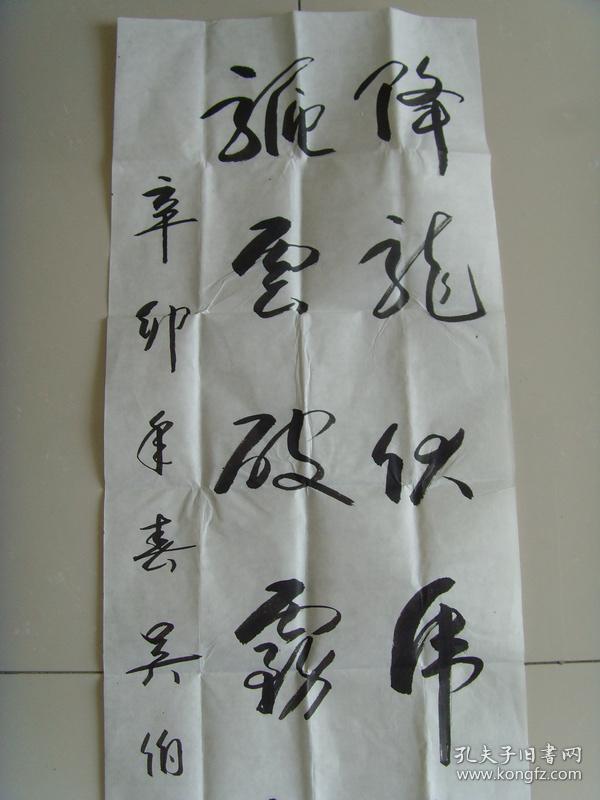 降龍伏虎
驅雲破霧
辛卯年春吴伯
孔夫子旧書网
www.kongfz.com